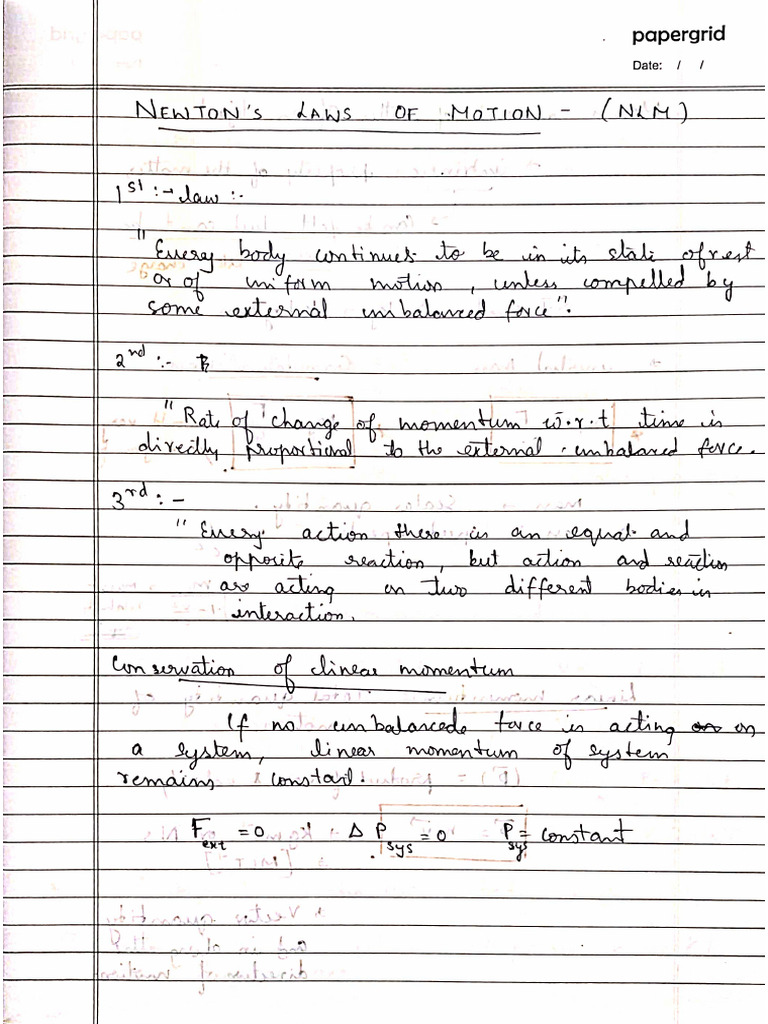 papergrid
Date: / /
NEWTON'S LAWS OF MOTION - (NLM)
1st :- law :-
"Every body continues to be in its state of rest
or of uniform motion, unless compelled by
some external unbalanced force".
2nd :-
"Rate of change of momentum w.r.t time is
directly proportional to the external unbalanced force.
3rd :-
"Every action there is an equal and
opposite reaction, but action and reaction
are acting on two different bodies in
interaction.
Conservation of linear momentum
If no unbalanced force is acting on
a system, linear momentum of system
remains constant.
Fext = 0 Δ Psys = 0 Psys = constant